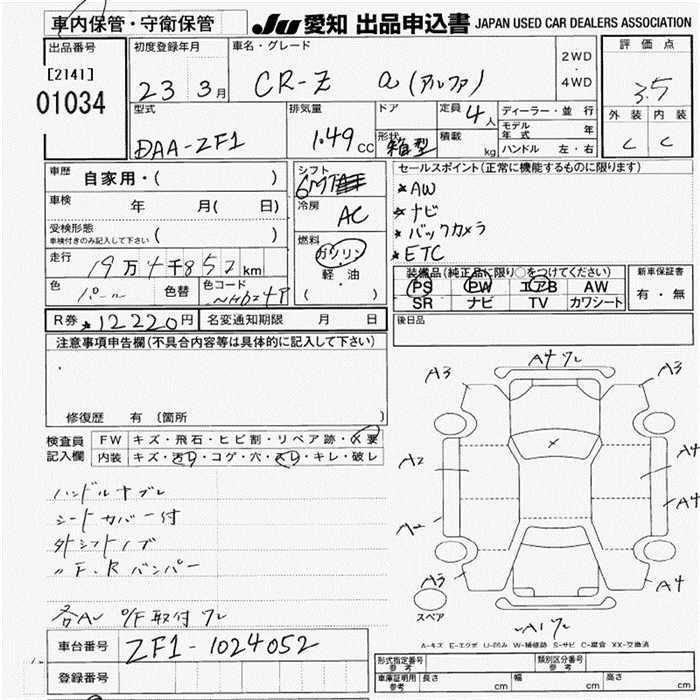 車内保管・守衛保管
JU 愛知 出品申込書 JAPAN USED CAR DEALERS ASSOCIATION
出品番号
[2141]
01034
初度登録年月
23 3月
車名・グレード
CR-Z α(アルファ)
2WD
・
4WD
評価点
3.5
外装 内装
C C
型式
DAA-ZF1
排気量
1.49 CC
ドア
形状
箱型
定員 4人
積載 kg
ディーラー・並行
モデル年式 年
ハンドル 左・右
車歴
自家用・( )
車検 年 月( 日)
受検形態
車検付きのみ記入して下さい ( )
走行
19万4千852km
色
パール
色替
色コード
NHB24P
シフト
6MT
冷房
AC
燃料
ガソリン
・
軽・油
( )
セールスポイント(正常に機能するものに限ります)
*AW
*ナビ
*バックカメラ
*ETC
装備品(純正品に限り○をつけてください)
PS PW エアB AW
SR ナビ TV カワシート
新車保証書
有・無
後日品
R券 *12220円
名変通知期限 月 日
注意事項申告欄(不具合内容等は具体的に記入して下さい)
修復歴 有 〔箇所 〕
検査員
記入欄
FW キズ・飛石・ヒビ割・リペア跡・X要
内装 キズ・汚れ・コゲ・穴・スレ・キレ・破レ
ハンドルナブレ
シートカバー付
外シフトノブ
〃 F.R バンパー
各AW O/F取付ワレ
車台番号 ZF1-1024052
登録番号
A4ワレ
A3 A3
X
A2 A4
A2 A4
A3 A4
スペア
A1ワレ
A-キズ E-エクボ U-凹み W-補修跡 S-サビ C-腐食 XX-交換済
形式指定番号
参考
類別区分番号
参考
車庫証明用
参考
長さ cm 幅 cm 高さ cm